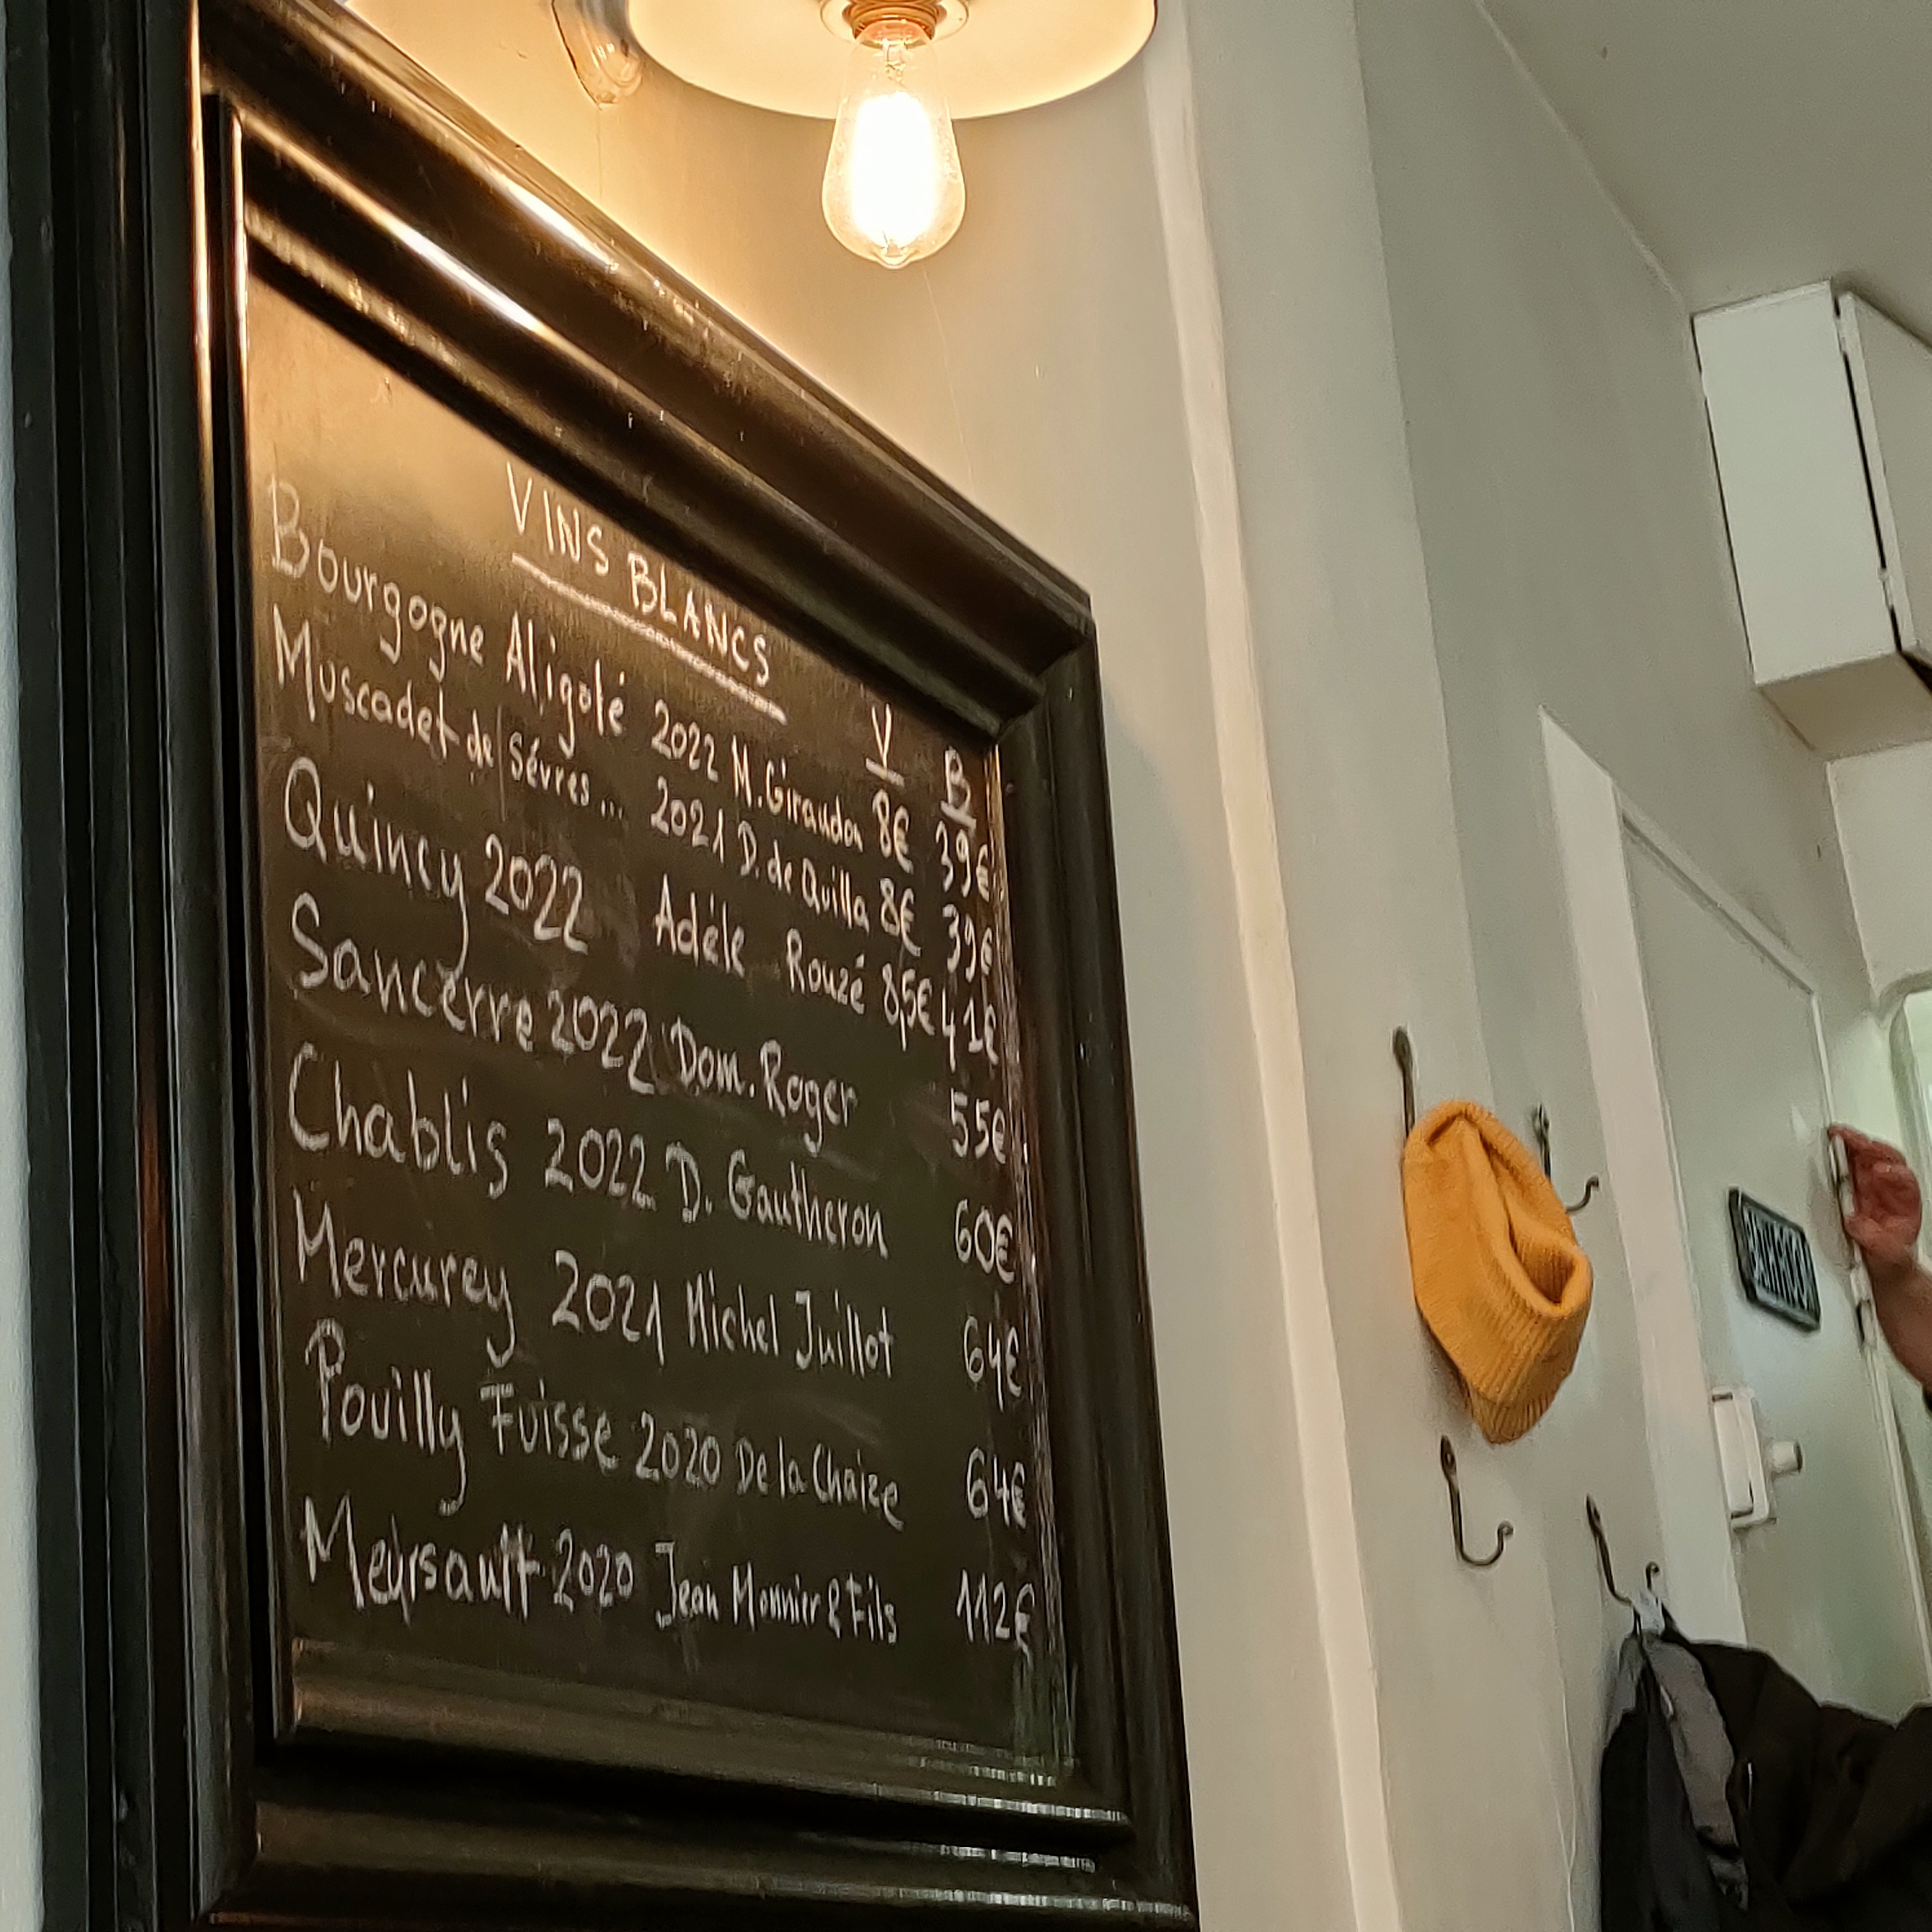 VINS BLANCS
V B
Bourgogne Aligoté 2022 M. Giraudon 8€ 39€
Muscadet de Sévres... 2021 D. de Quilla 8€ 39€
Quincy 2022 Adèle Rouzé 8,5€ 41€
Sancerre 2022 Dom. Roger 55€
Chablis 2022 D. Gautheron 60€
Mercurey 2021 Michel Juillot 64€
Pouilly Fuisse 2020 De la Chaize 64€
Meursault 2020 Jean Monnier & Fils 112€
BATHROOM